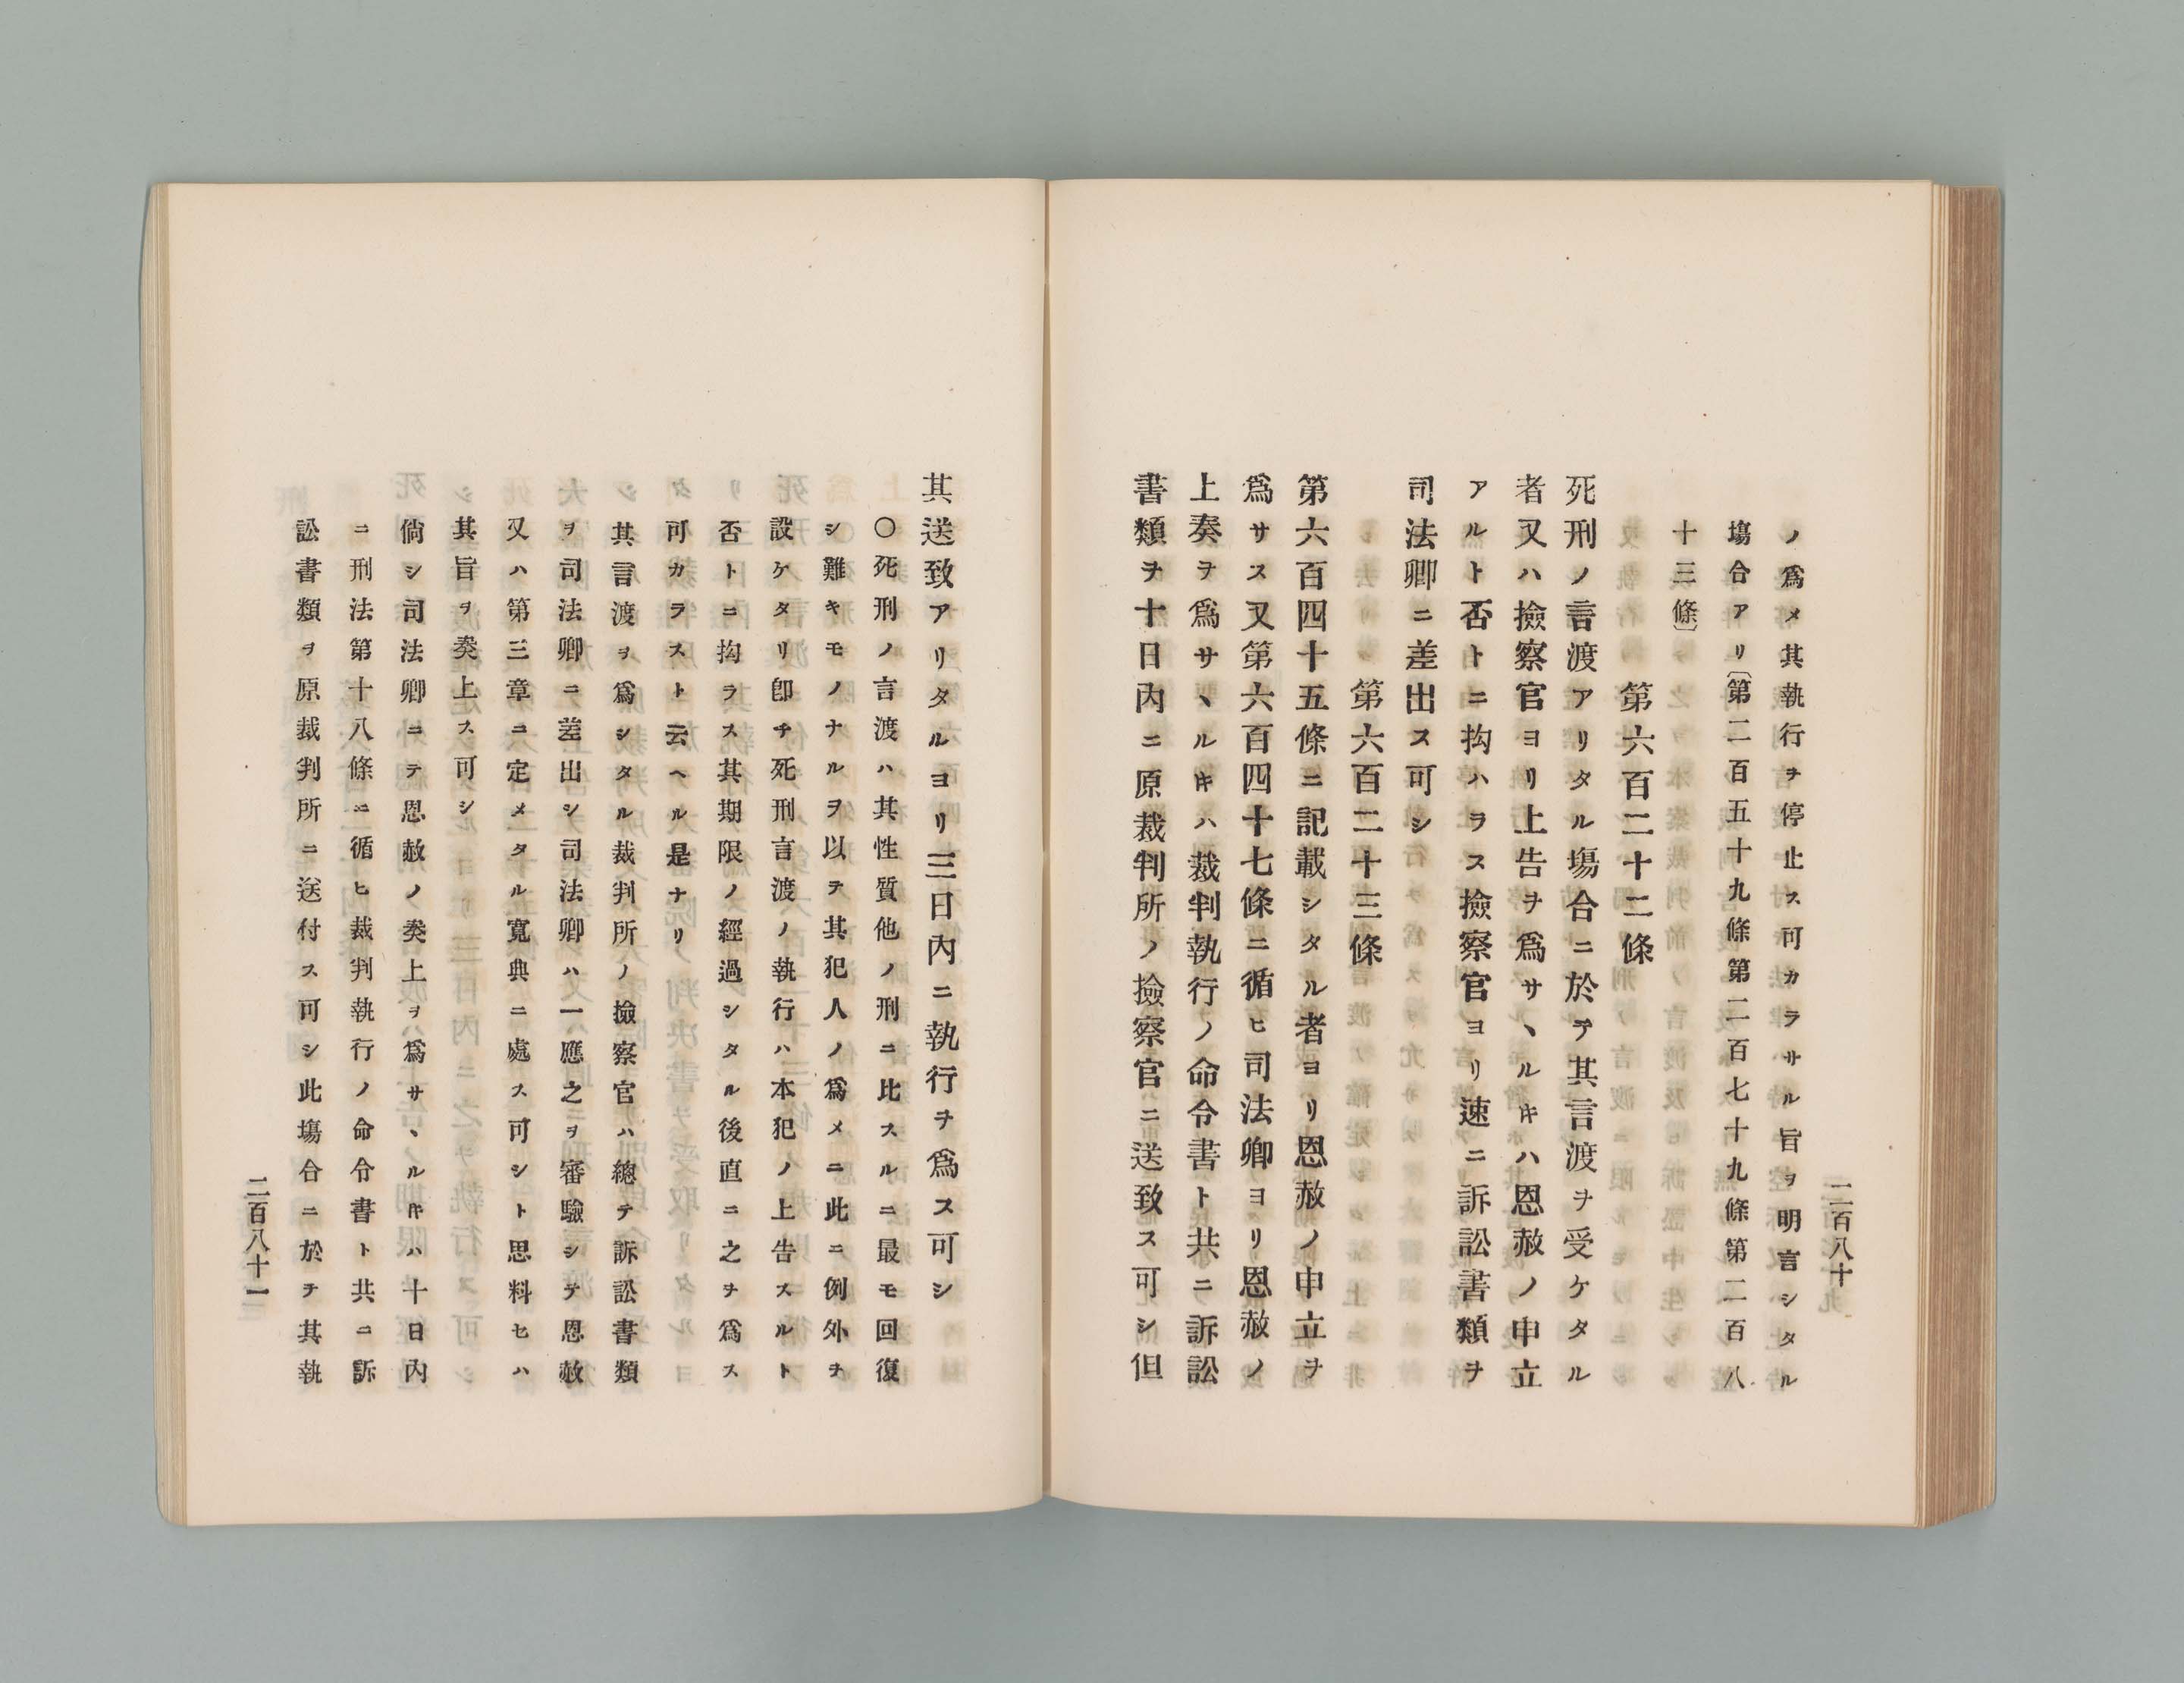 ノ爲メ其執行ヲ停止ス可カラサル旨ヲ明言シタル
塲合アリ〔第二百五十九條第二百七十九條第二百八
十三條〕
第六百二十二條
死刑ノ言渡アリタル塲合ニ於テ其言渡ヲ受ケタル
者又ハ撿察官ヨリ上告ヲ爲サヽルキハ恩赦ノ申立
アルト否トニ拘ハラス撿察官ヨリ速ニ訴訟書類ヲ
司法卿ニ差出ス可シ
第六百二十三條
第六百四十五條ニ記載シタル者ヨリ恩赦ノ申立ヲ
爲サス又第六百四十七條ニ循ヒ司法卿ヨリ恩赦ノ
上奏ヲ爲サヽルキハ裁判執行ノ命令書ト共ニ訴訟
書類ヲ十日內ニ原裁判所ノ撿察官ニ送致ス可シ但
二百八十
其送致アリタルヨリ三日內ニ執行ヲ爲ス可シ
〇死刑ノ言渡ハ其性質他ノ刑ニ比スルニ最モ回復
シ難キモノナルヲ以テ其犯人ノ爲メニ此ニ例外ヲ
設ケタリ卽チ死刑言渡ノ執行ハ本犯ノ上告スルト
否トニ拘ラス其期限ノ經過シタル後直ニ之ヲ爲ス
可カラスト云ヘル是ナリ
其言渡ヲ爲シタル裁判所ノ撿察官ハ總テ訴訟書類
ヲ司法卿ニ差出シ司法卿ハ一應之ヲ審驗シテ恩赦
又ハ第三章ニ定メタル寬典ニ處ス可シト思料セハ
其旨ヲ奏上ス可シ
倘シ司法卿ニテ恩赦ノ奏上ヲ爲サヽルキハ十日內
ニ刑法第十八條ニ循ヒ裁判執行ノ命令書ト共ニ訴
訟書類ヲ原裁判所ニ送付ス可シ此塲合ニ於テ其執
二百八十一